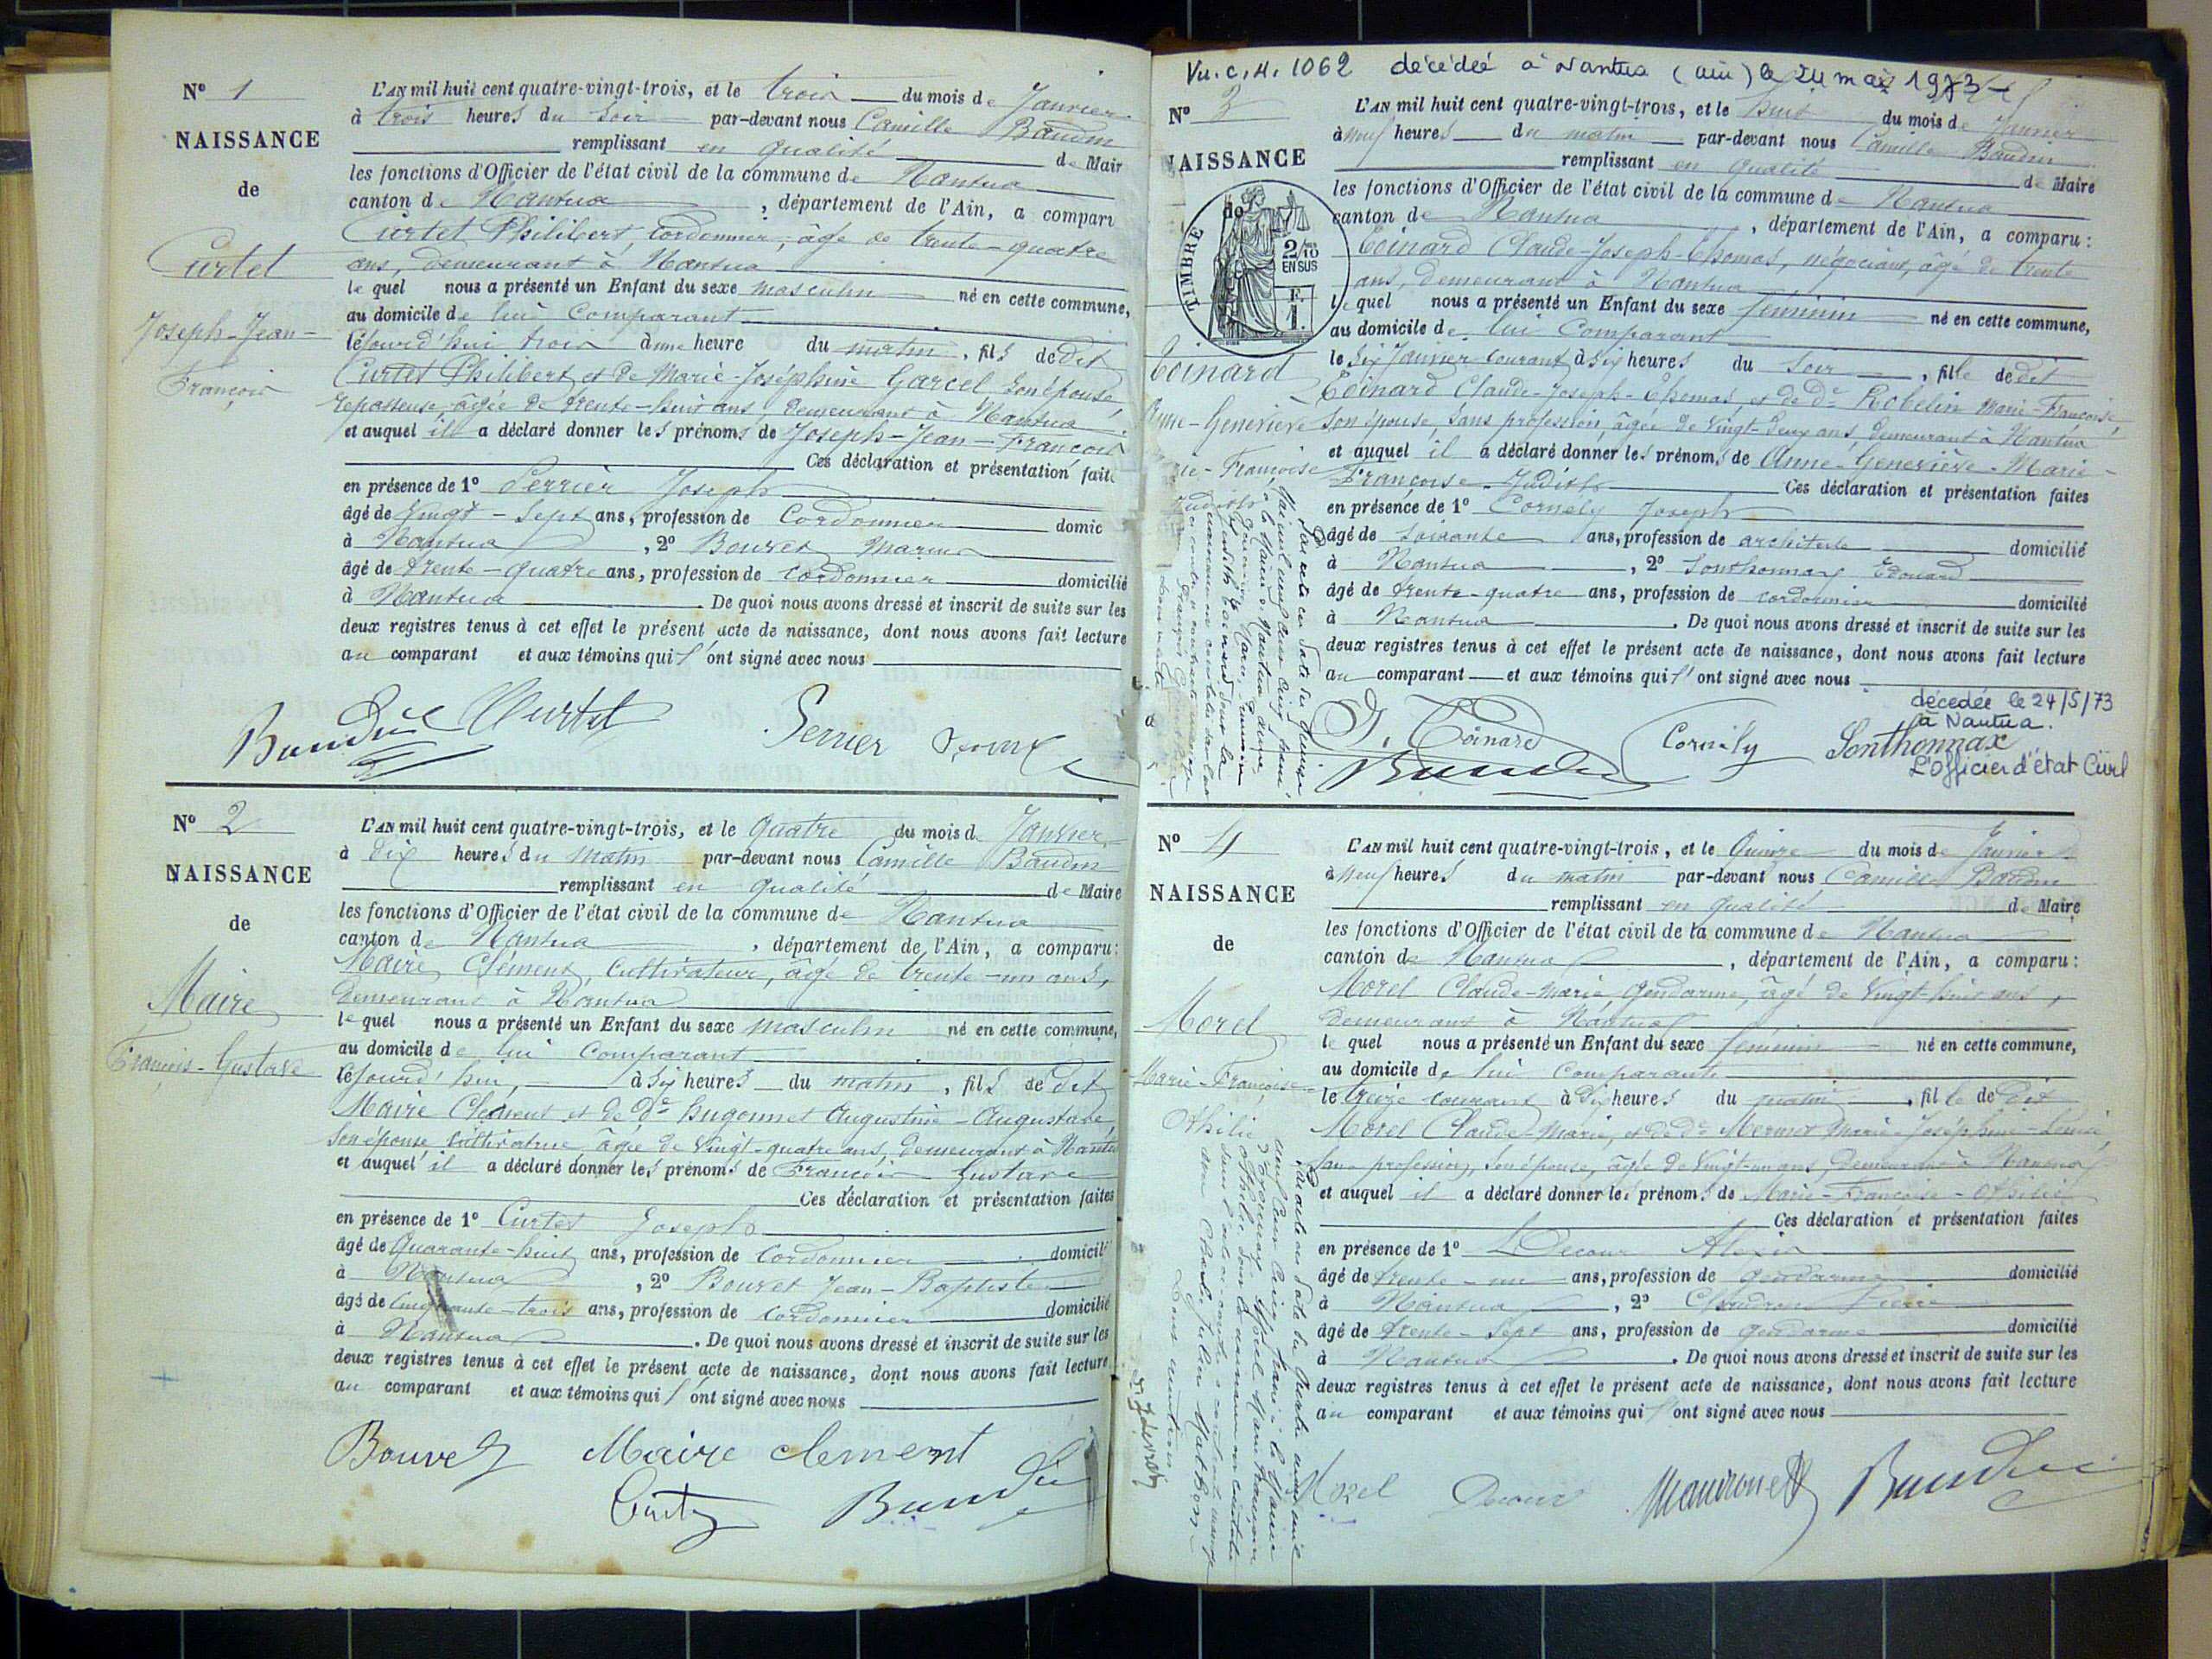 N° 1
NAISSANCE
de
Curtet
Joseph-Jean-
François
L'AN mil huit cent quatre-vingt-trois, et le trois du mois de Janvier
à trois heures du Soir par-devant nous Camille Baudin
remplissant en qualité de Mair
les fonctions d'Officier de l'état civil de la commune de Nantua
canton de Nantua, département de l'Ain, a comparu
Curtet Philibert, Cordonnier, âgé de trente-quatre
ans, demeurant à Nantua
le quel nous a présenté un Enfant du sexe masculin né en cette commune,
au domicile de lui Comparant
lejourd'hui trois à une heure du matin, fils de dit
Curtet Philibert, et de Marie-Joséphine Garcel Son épouse,
repasseuse, âgée de trente-huit ans, demeurant à Nantua
et auquel il a déclaré donner les prénoms de Joseph-Jean-François
Ces déclaration et présentation faite
en présence de 1° Perrier Joseph
âgé de Vingt-Sept ans, profession de Cordonnier domic
à Nantua, 2° Bouvet Marius
âgé de trente-quatre ans, profession de Cordonnier domicilié
à Nantua. De quoi nous avons dressé et inscrit de suite sur les
deux registres tenus à cet effet le présent acte de naissance, dont nous avons fait lecture
au comparant et aux témoins qui l'ont signé avec nous
Baudin Curtet Perrier
N° 2
NAISSANCE
de
Maire
François-Gustave
L'AN mil huit cent quatre-vingt-trois, et le Quatre du mois de Janvier
à Dix heures du Matin par-devant nous Camille Baudin
remplissant en qualité de Maire
les fonctions d'Officier de l'état civil de la commune de Nantua
canton de Nantua, département de l'Ain, a comparu:
Maire Clément, Cultivateur, âgé de trente-un ans,
demeurant à Nantua
le quel nous a présenté un Enfant du sexe masculin né en cette commune,
au domicile de lui Comparant
lejourd'hui, à Six heures du matin, fils de dit
Maire Clément et de De hugonnet Augustine-
Son épouse, âgée de Vingt-quatre ans, demeurant à Nantua
et auquel il a déclaré donner les prénoms de François Gustave
Ces déclaration et présentation faites
en présence de 1° Curtet Joseph
âgé de Quarante-huit ans, profession de Cordonnier domicilié
à Nantua, 2° Bouvet Jean-Baptiste
âgé de Cinquante-trois ans, profession de Cordonnier domicilié
à Nantua. De quoi nous avons dressé et inscrit de suite sur les
deux registres tenus à cet effet le présent acte de naissance, dont nous avons fait lecture
au comparant et aux témoins qui l'ont signé avec nous
Bouvet Maire clement
Baudin
Vu. C.H. 1062 décédée à Nantua (ain) le 24 mai 1973
N° 3
NAISSANCE
de
TIMBRE
2/10
EN SUS
F.
1.
Coinard
Anne-Geneviève
Françoise
L'AN mil huit cent quatre-vingt-trois, et le huit du mois de Janvier
à neuf heures du matin par-devant nous Camille Baudin
remplissant en qualité de Maire
les fonctions d'Officier de l'état civil de la commune de Nantua
canton de Nantua, département de l'Ain, a comparu:
Coinard Claude-Joseph-Thomas, négociant, âgé de trente
ans, demeurant à Nantua
le quel nous a présenté un Enfant du sexe féminin né en cette commune,
au domicile de lui Comparant
le Six Janvier courant, à Six heures du Soir, fille de dit
Coinard Claude-Joseph-Thomas, et de De Robelin Marie-Françoise,
Son épouse, Sans profession, âgée de Vingt-deux ans, demeurant à Nantua
et auquel il a déclaré donner les prénoms de Anne-Geneviève-Marie-
Françoise-Judith Ces déclaration et présentation faites
en présence de 1° Cornely Joseph
âgé de Soixante ans, profession de architecte domicilié
à Nantua, 2° Sonthonnax Edouard
âgé de trente-quatre ans, profession de cordonnier domicilié
à Nantua. De quoi nous avons dressé et inscrit de suite sur les
deux registres tenus à cet effet le présent acte de naissance, dont nous avons fait lecture
au comparant et aux témoins qui l'ont signé avec nous
décédée le 24/5/73
à Nantua.
J. Coinard Cornély Sonthonnax
Baudin L'Officier d'état Civil
N° 4
NAISSANCE
de
Morel
Marie-Françoise
L'AN mil huit cent quatre-vingt-trois, et le Quinze du mois de Janvier
à Neuf heures du matin par-devant nous Camille Baudin
remplissant en qualité de Maire
les fonctions d'Officier de l'état civil de la commune de Nantua
canton de Nantua, département de l'Ain, a comparu:
Morel Claude-Marie, Gendarme, âgé de Vingt-huit ans,
demeurant à Nantua
le quel nous a présenté un Enfant du sexe féminin né en cette commune,
au domicile de lui Comparant
le treize courant à Dix heures du matin, fille de dit
Morel Claude-Marie, et de De Mermet Marie-Joséphine-Louise,
Sans profession, Son épouse, âgée de Vingt-un ans, demeurant à Nantua
et auquel il a déclaré donner les prénoms de Marie-Françoise-
Ces déclaration et présentation faites
en présence de 1° Decour Alexis
âgé de trente-un ans, profession de Gendarme domicilié
à Nantua, 2° Pierre
âgé de trente-Sept ans, profession de gendarme domicilié
à Nantua. De quoi nous avons dressé et inscrit de suite sur les
deux registres tenus à cet effet le présent acte de naissance, dont nous avons fait lecture
au comparant et aux témoins qui l'ont signé avec nous
Morel Decour Baudin